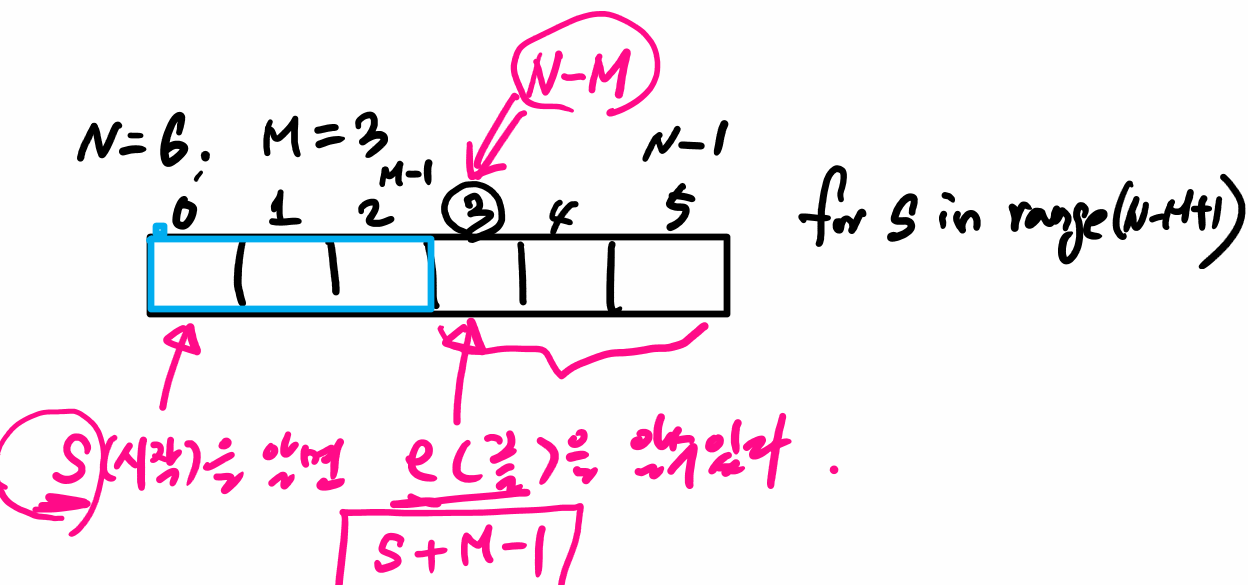 N-M
N=6, M=3
M-1
N-1
0 1 2 3 4 5
for S in range(N-M+1)
S(시작)을 알면 e(끝)을 알수있다.
S+M-1